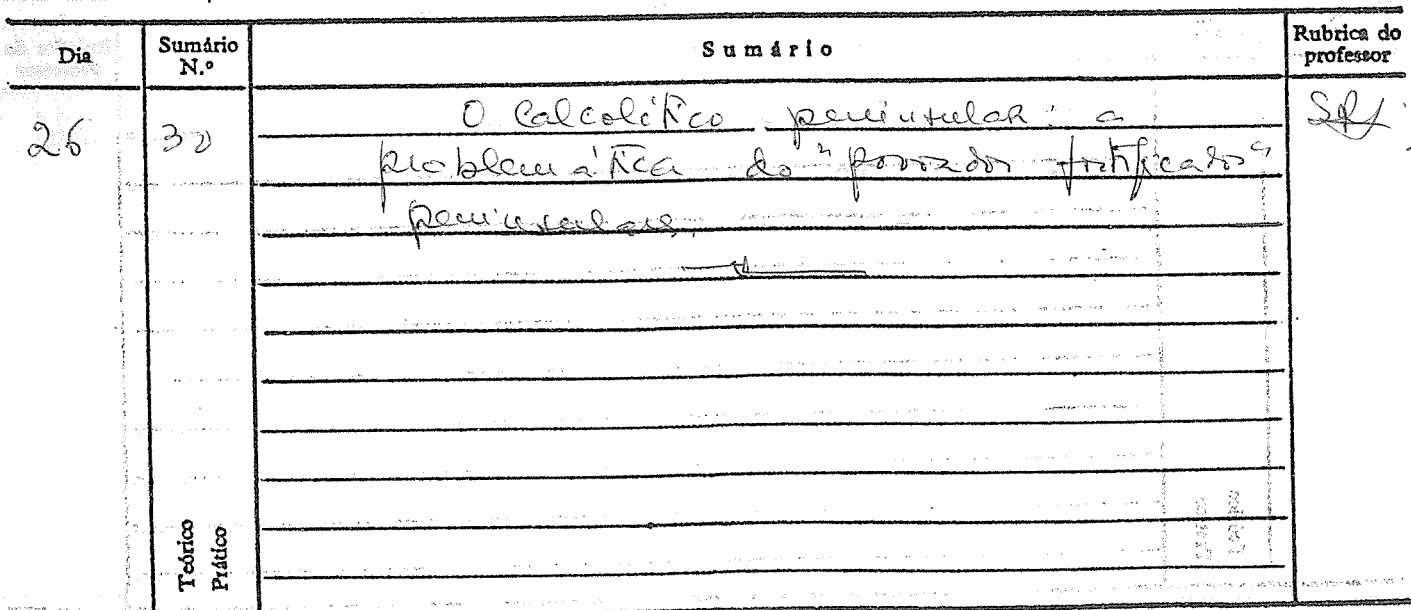 Dia Sumário N.º Sumário Rubrica do professor
26 30 O Calcolítico peninsular: a
problemática do "povoados fortificados"
peninsulares.
Teórico
Prático